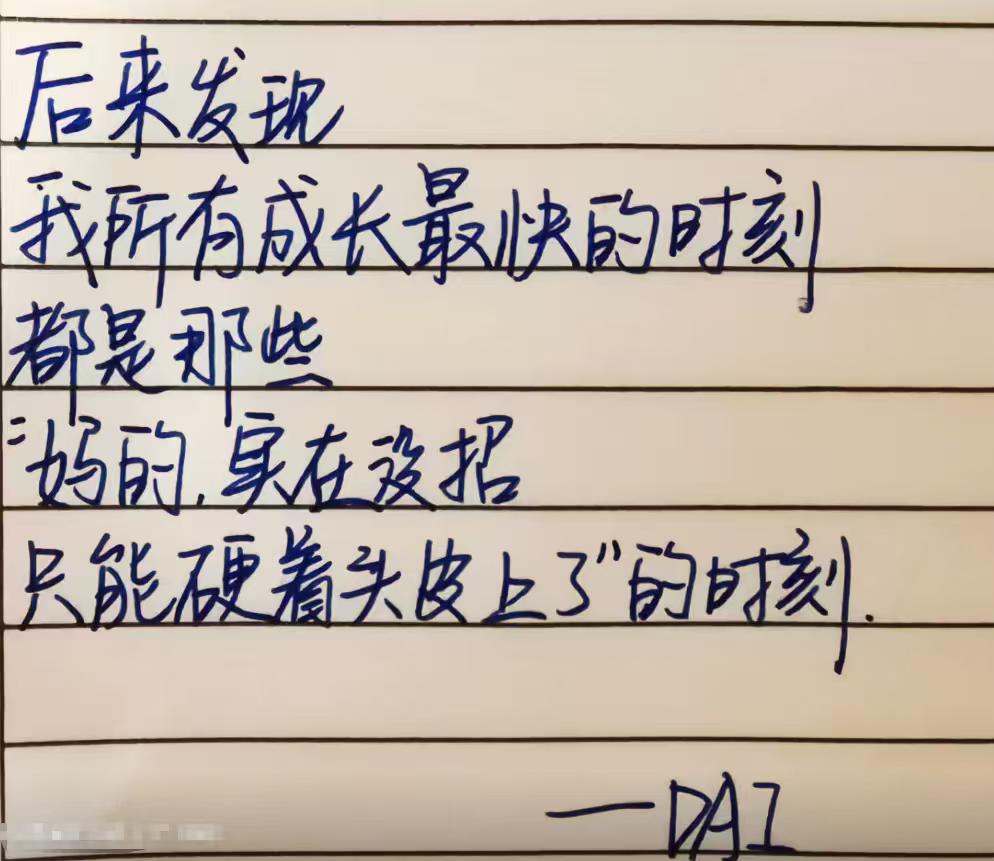 后来发现
我所有成长最快的时刻
都是那些
"妈的,实在没招
只能硬着头皮上了"的时刻.
—DAI